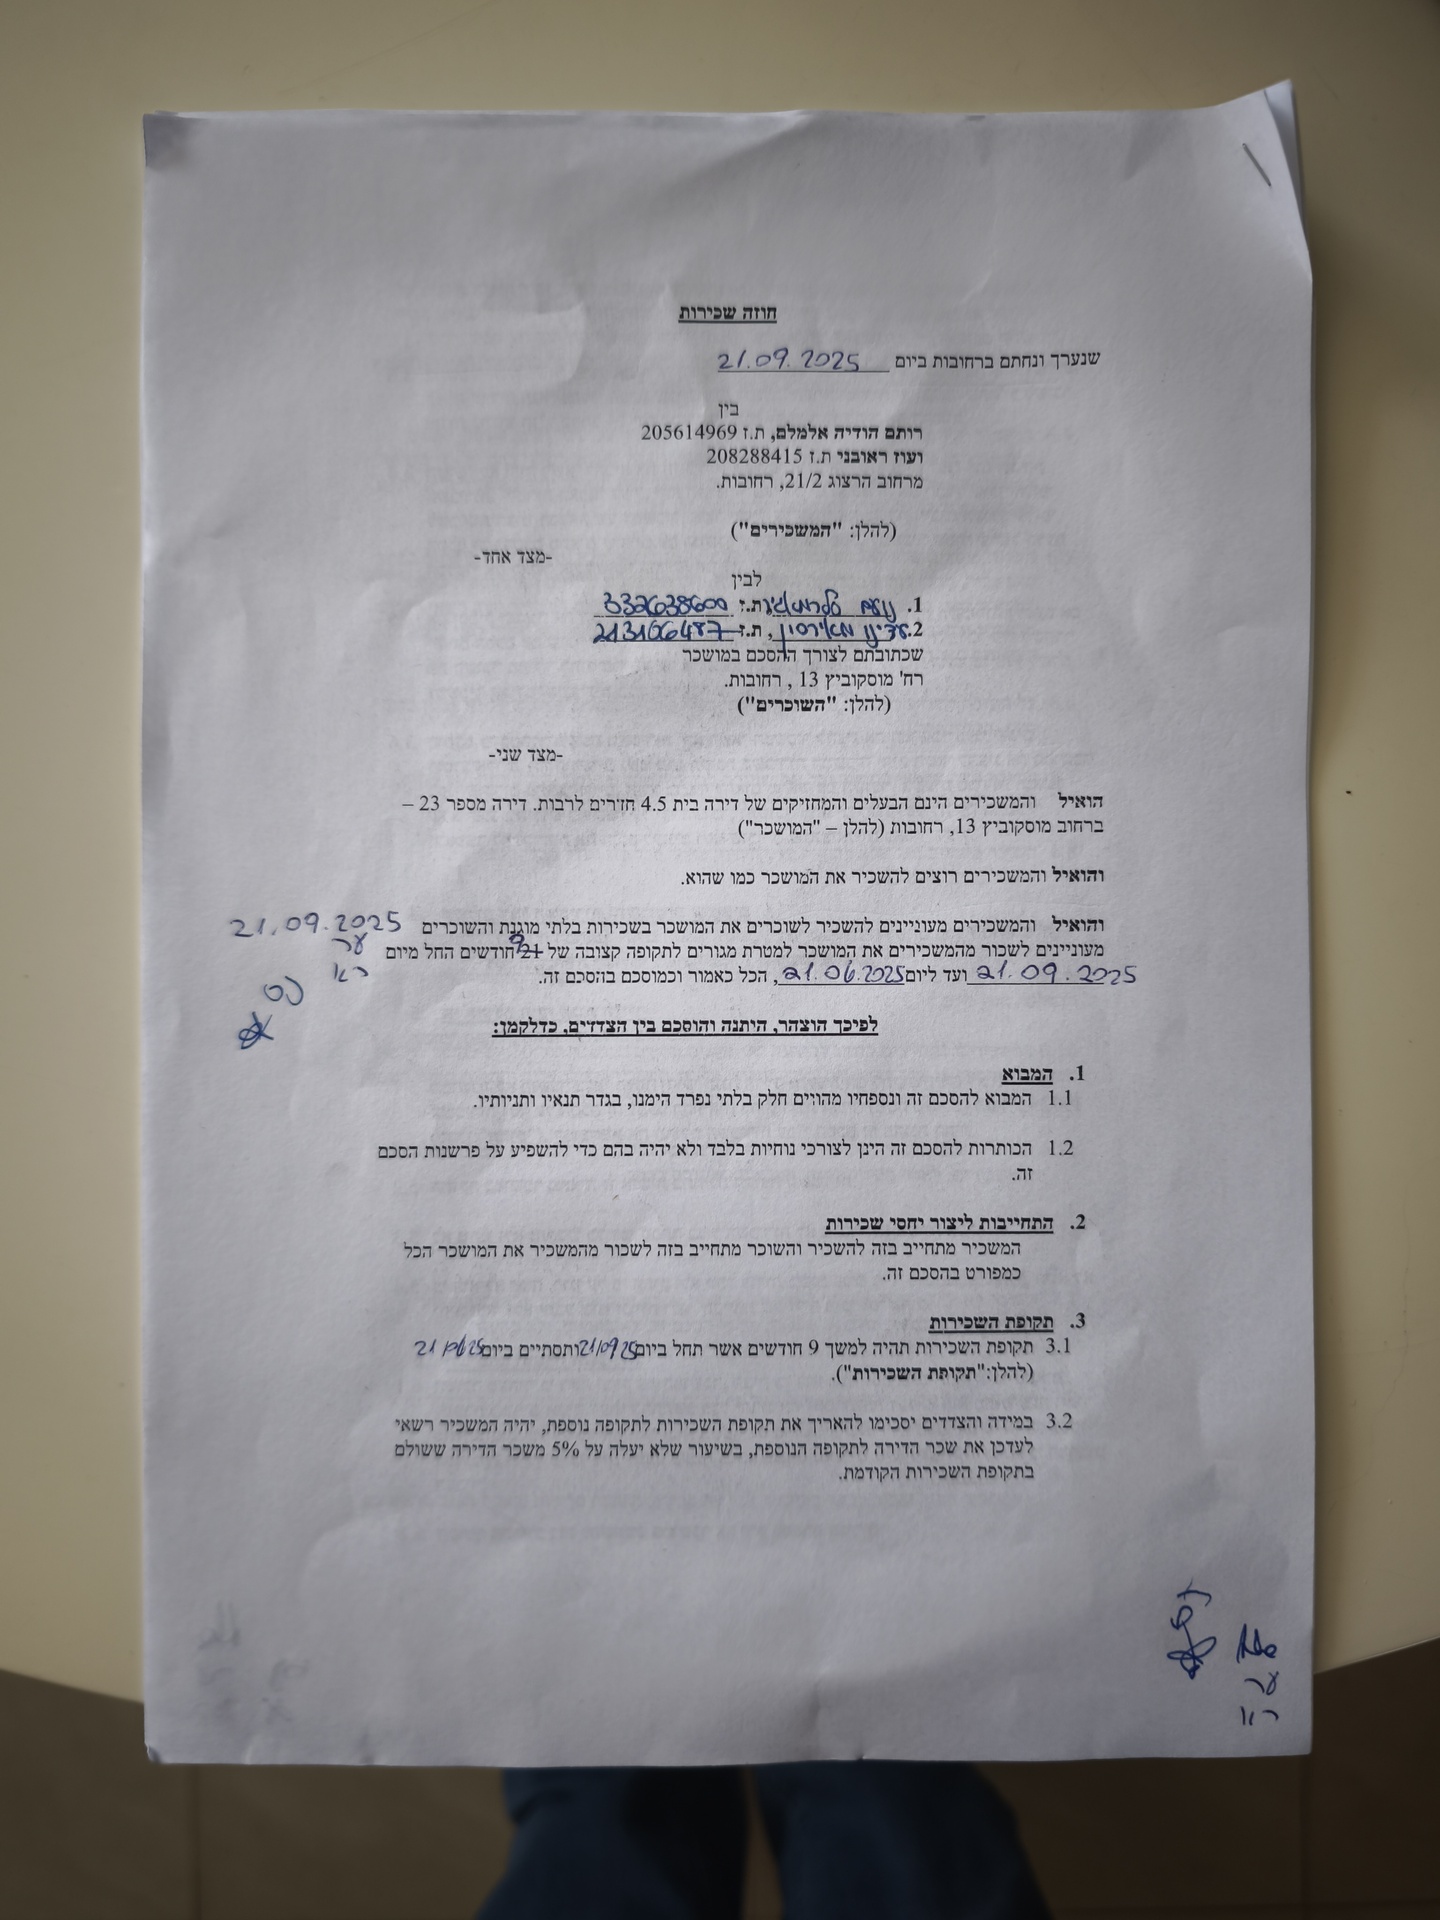 חוזה שכירות
שנערך ונחתם ברחובות ביום 21.09.2025
בין
רותם הודיה אלמלם, ת.ז 205614969
ועוז ראובני ת.ז 208288415
מרחוב הרצוג 21/2, רחובות.
(להלן: "המשכירים")
-מצד אחד-
לבין
1. נועם ת.ז 332638600
2. עדינו מאירסון, ת.ז 213166487
שכתובתם לצורך ההסכם במושכר
רח' מוסקוביץ 13 , רחובות.
(להלן: "השוכרים")
-מצד שני-
הואיל והמשכירים הינם הבעלים והמחזיקים של דירה בית 4.5 חדרים לרבות. דירה מספר 23 –
ברחוב מוסקוביץ 13, רחובות (להלן – "המושכר")
והואיל והמשכירים רוצים להשכיר את המושכר כמו שהוא.
והואיל והמשכירים מעוניינים להשכיר לשוכרים את המושכר בשכירות בלתי מוגנת והשוכרים 21.09.2025
מעוניינים לשכור מהמשכירים את המושכר למטרת מגורים לתקופה קצובה של 21 9 חודשים החל מיום ער
21.09.2025 ועד ליום 21.06.2025, הכל כאמור וכמוסכם בהסכם זה. רא
לפיכך הוצהר, היתנה והוסכם בין הצדדים, כדלקמן:
1. המבוא
1.1 המבוא להסכם זה ונספחיו מהווים חלק בלתי נפרד הימנו, בגדר תנאיו ותניותיו.
1.2 הכותרות להסכם זה הינן לצורכי נוחיות בלבד ולא יהיה בהם כדי להשפיע על פרשנות הסכם
זה.
2. התחייבות ליצור יחסי שכירות
המשכיר מתחייב בזה להשכיר והשוכר מתחייב בזה לשכור מהמשכיר את המושכר הכל
כמפורט בהסכם זה.
3. תקופת השכירות
3.1 תקופת השכירות תהיה למשך 9 חודשים אשר תחל ביום 21/09/25 ותסתיים ביום
(להלן:"תקופת השכירות").
3.2 במידה והצדדים יסכימו להאריך את תקופת השכירות לתקופה נוספת, יהיה המשכיר רשאי
לעדכן את שכר הדירה לתקופה הנוספת, בשיעור שלא יעלה על 5% משכר הדירה ששולם
בתקופת השכירות הקודמת.
ער
רא